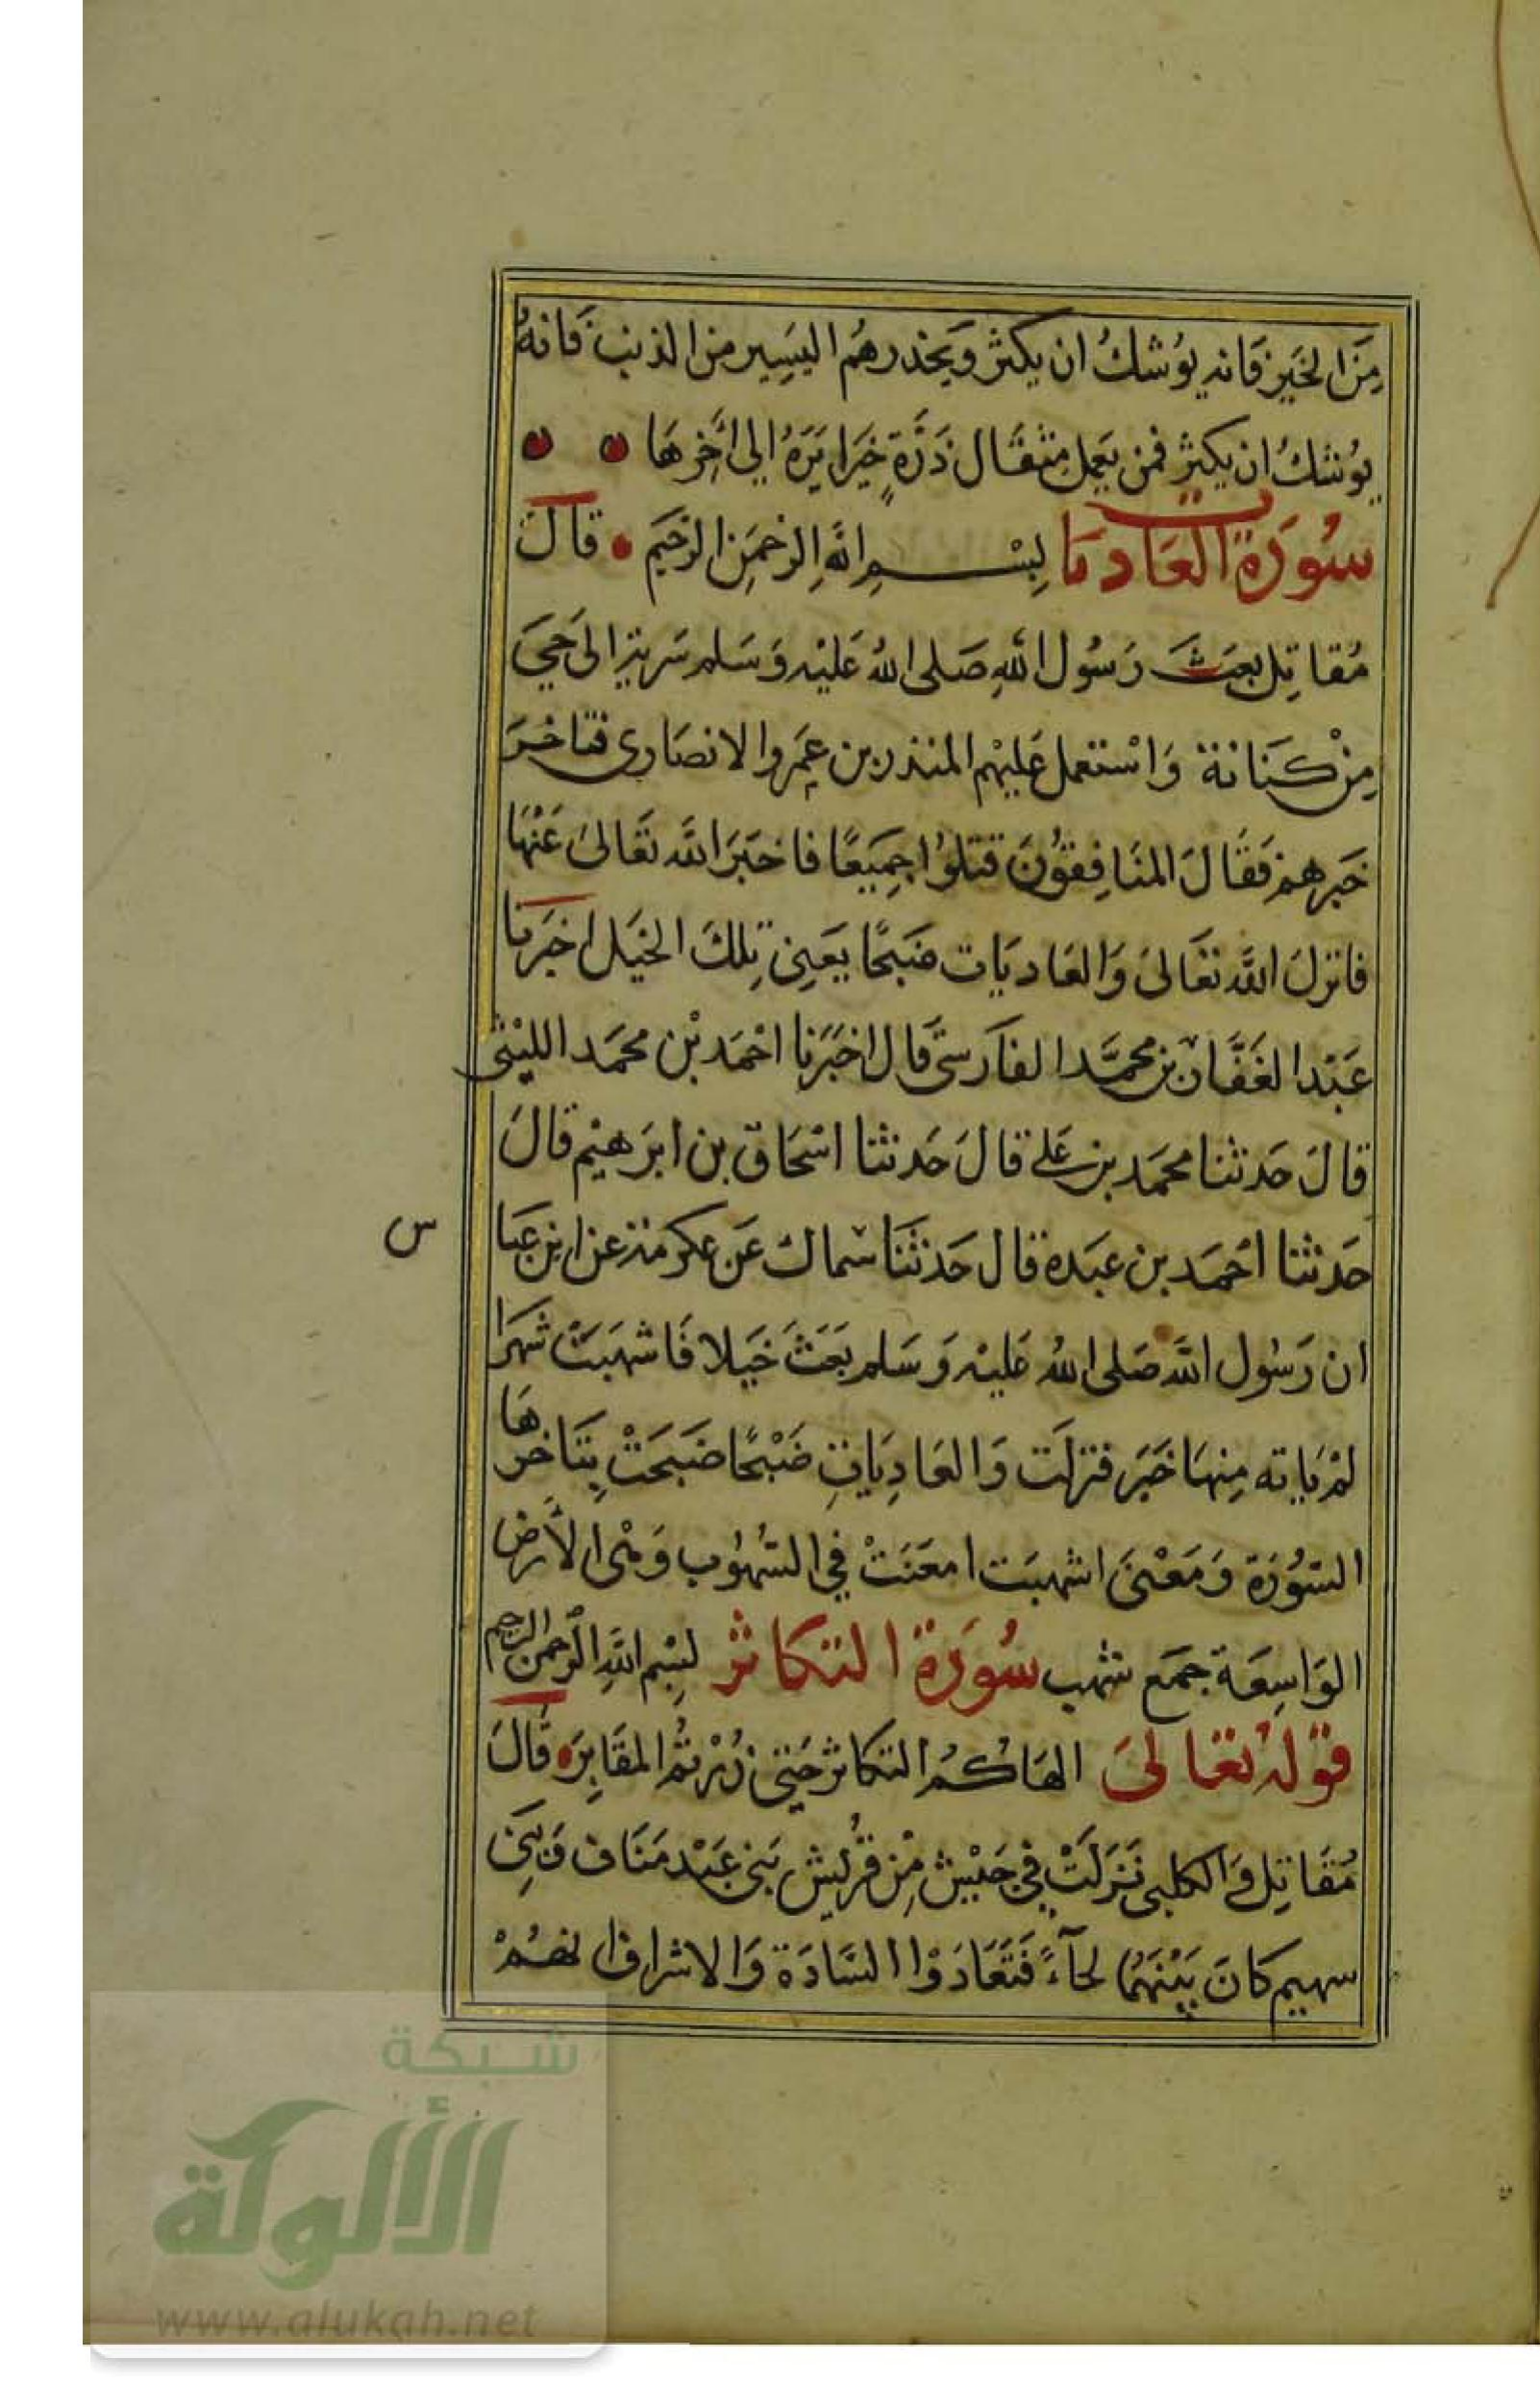 مِنَ الخَيرِ فَانه يوُشكُ ان يكثر وَيحذرهُم اليَسِير من الذنب فَانهُ
يوُشكُ ان يكثر فمن يَعمل مِثقَال ذَرَّةٍ خَيرا يَرَهُ الي اخِرهَا
سُورَة العَاديَات بِسْمِ اللهِ الرحمَنِ الرَّحيَمِ قَالَ
مُقاتِل بعَثَ رَسُول اللهِ صَلى اللهُ عَليْه وَسَلم سَرية الىَ حَي
مِنْ كنَانة وَاسْتعمل عَليْهم المنذر بن عَمِرو الانصَاري فتاخرَ
خَبرهم فَقَالَ المنَافِقوُنَ قتلوُا جمِيَعًا فاخبَرَ اللَّه تَعَالىَ عَنْهَا
فانزلَ اللَّه تعَالىَ وَالعَاديَات ضَبحًا يَعَنِي تِلكَ الخيَل اخبَرنا
عَبْد الغَفَّار بن محمَّد الفَارسيّ قال اخبَرَنا احْمَد بْن محمَد الليْثي
قالَ حَدثنا محمَد بن عَلي قالَ حَدثنا اسْحَاق بن ابرَهيْم قالَ
حَدثنا احْمَد بن عَبَدة قال حَدثنَا سماك عَن عكرمة عن ابن عَبا
س
ان رَسوُل اللَّه صَلى اللهُ عَليْه وَسَلم بَعَثَ خَيَلا فَاشهَبَتْ شهرًا
لمْ يَاته مِنهَا خَبَر فنزلَت وَالعَادِيَاتِ ضَبْحًا ضَبَحَتْ بِمَنَاخرهَا
السُّورَة وَمَعْنىَ اشهبَت امعَنَتْ في الشُهوُب وَهْي الأرض
الوَاسِعَة جمَع شهب سُورَة التكاثر بِسْم اللهِ الرحمن الرحيم
قولهُ تعَالىَ الهَاكُم التكاثر حَتى زُرْتمُ المقَابِرَ قَالَ
مُقَاتِل وَالكلبي نَزَلَتْ فيِ حَيَيْن مِنْ قُريش بَني عَبْد مَنَاف وَبَني
سهيم كانَ بَيْنَهمُا لحآءً فَتَعَادَوْا السَّادَة وَالاشراف ايهُمْ
شبكة
الألوكة
www.alukah.net